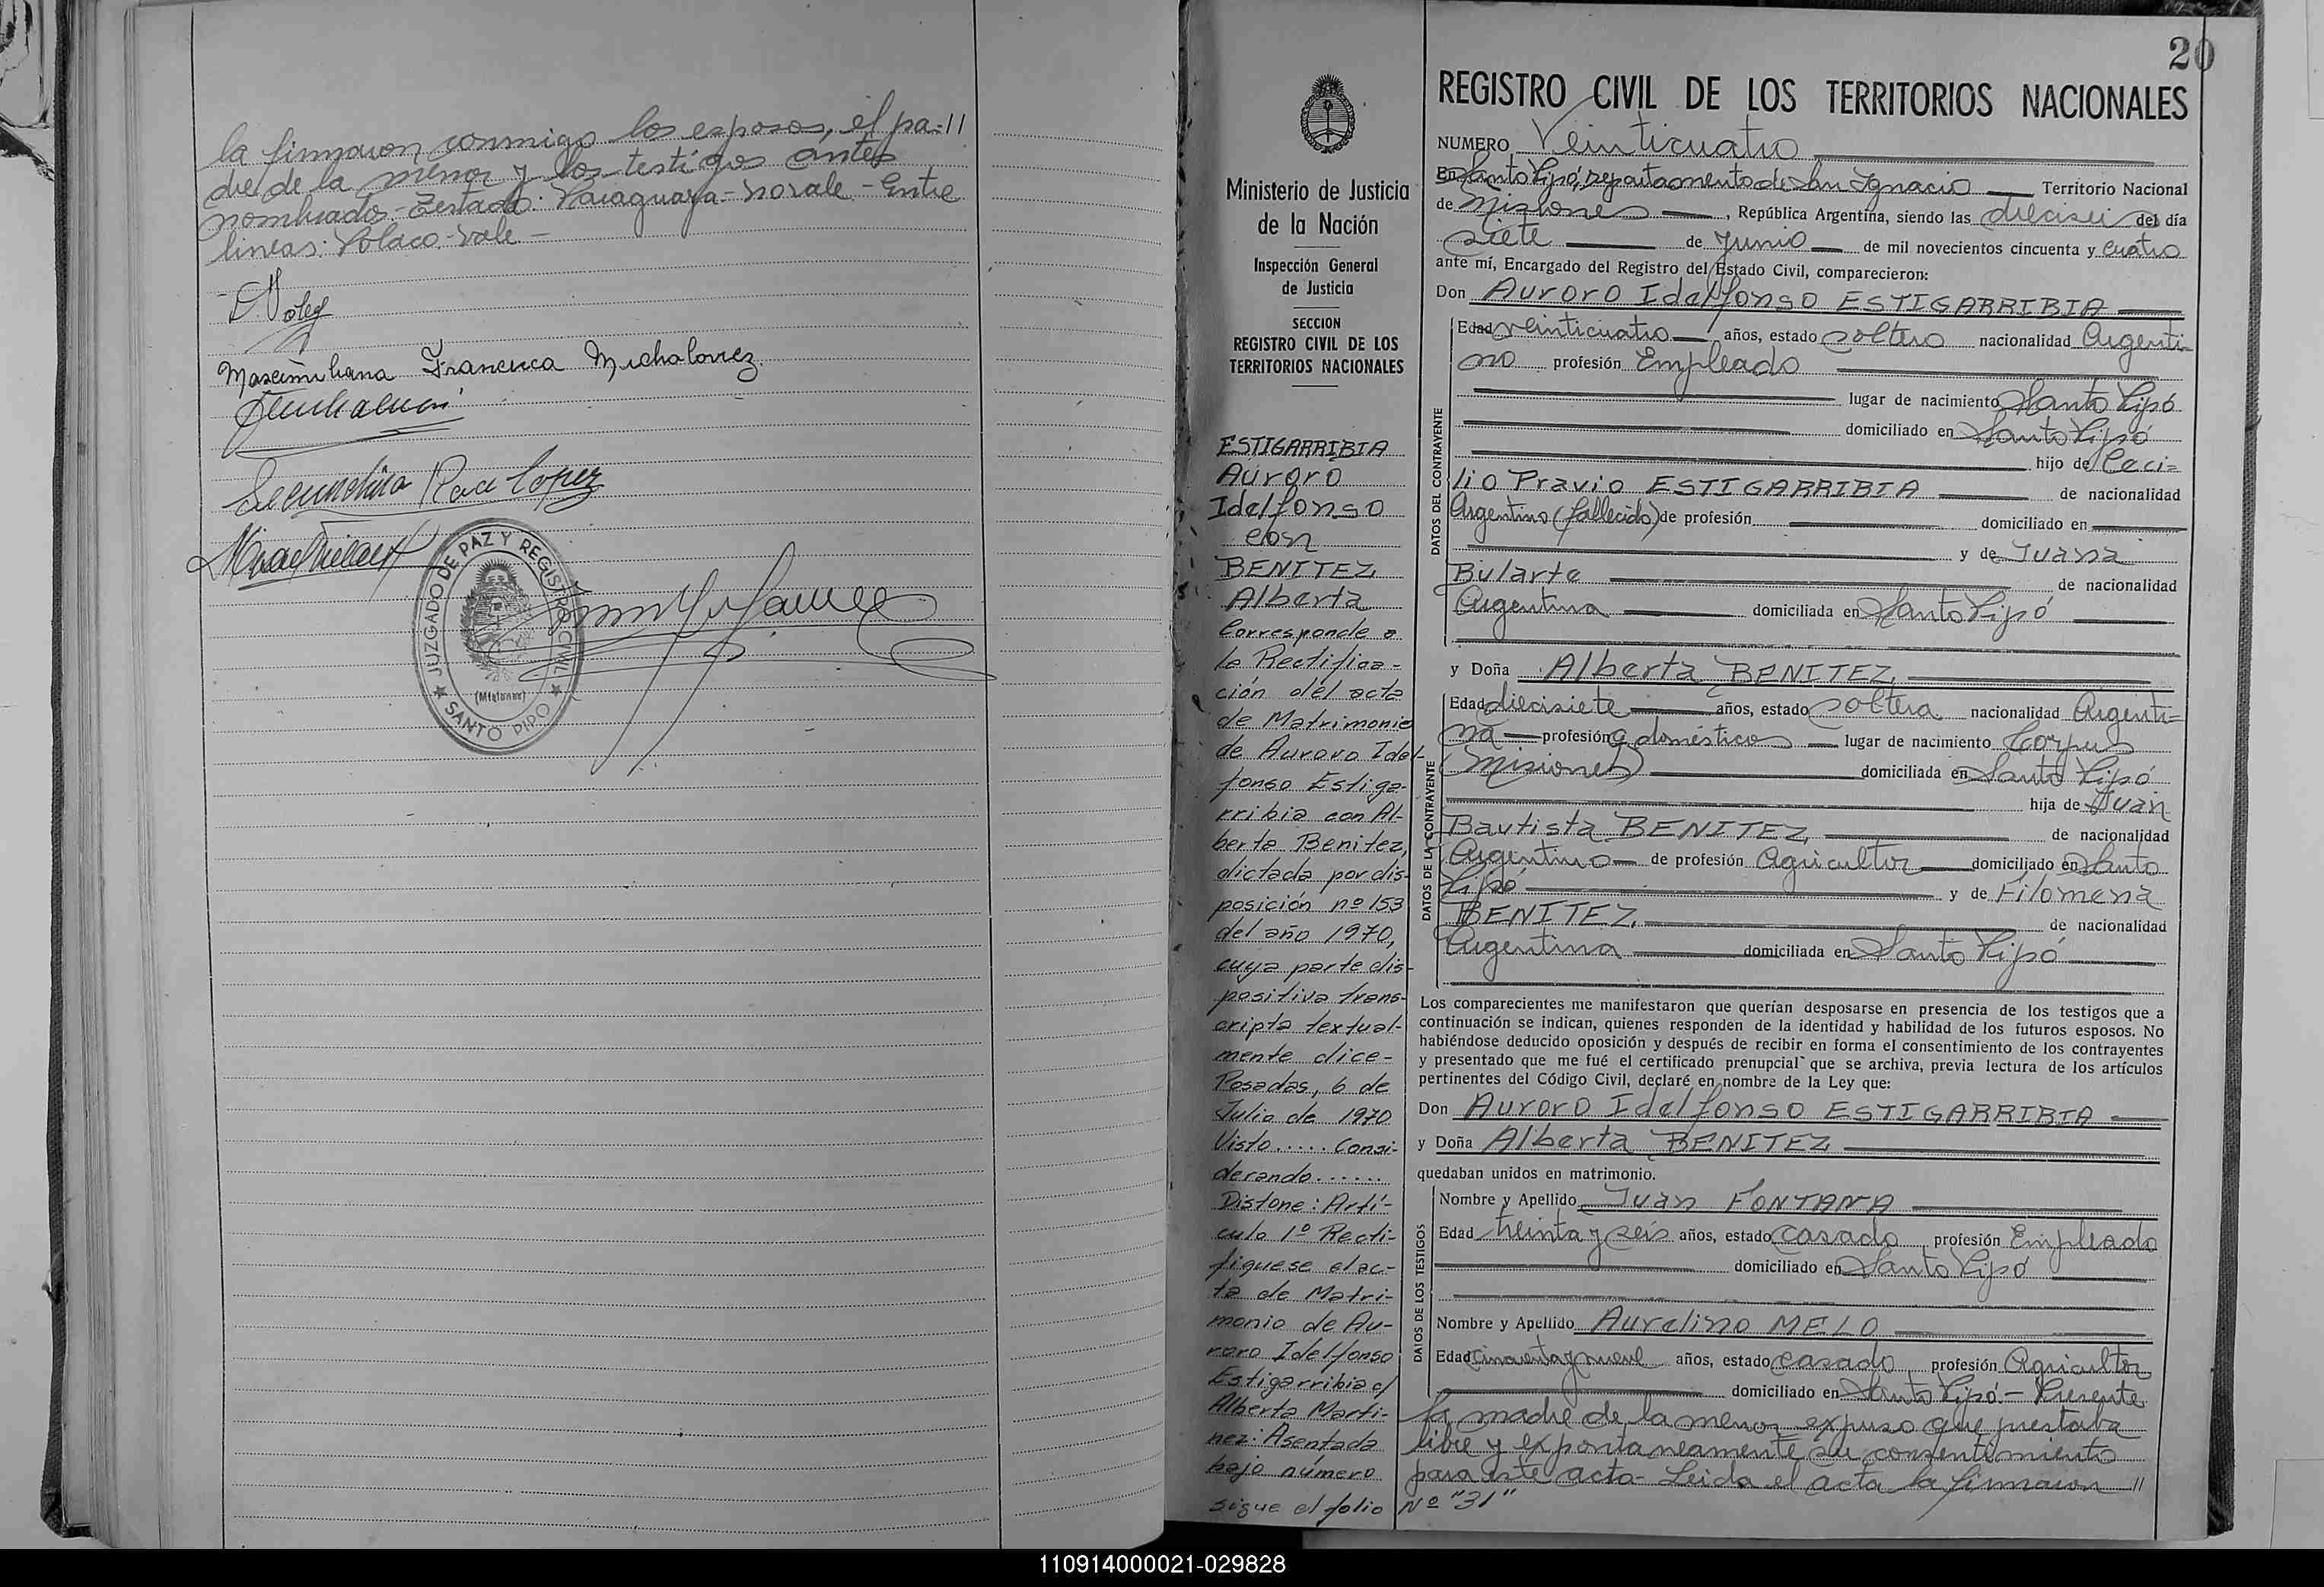 la firmaron conmigo los esposos, el pa=//
dre de la menor y los testigos antes
nombrados.- Testado: Paraguaya - no vale - Entre
lineas: Polaco - vale.-
Maximiliana Francisca Michalowicz
Secundina Roa Lopez
JUZGADO DE PAZ Y REGISTRO CIVIL
(Misiones)
SANTO PIPO
20
Ministerio de Justicia
de la Nación
Inspección General
de Justicia
SECCION
REGISTRO CIVIL DE LOS
TERRITORIOS NACIONALES
ESTIGARRIBIA
Auroro
Idelfonso
con
BENITEZ,
Alberta
Corresponde a
la Rectifica-
ción del acta
de Matrimonio
de Auroro Idel-
fonso Estiga-
rribia con Al-
berta Benitez,
dictada por dis-
posición nº 153
del año 1970,
cuya parte dis-
positiva trans-
cripta textual-
mente dice-
Posadas, 6 de
Julio de 1970
Visto..... Consi-
derando......
Distone: Artí-
culo 1º Recti-
fiquese el ac-
ta de Matri-
monio de Au-
roro Idelfonso
Estigarribia c/
Alberta Marti-
nez: Asentada
bajo número
sigue el folio Nº "31"
REGISTRO CIVIL DE LOS TERRITORIOS NACIONALES
NUMERO Veinticuatro
En Santo Pipó, departamento de San Ignacio Territorio Nacional
de Misiones, República Argentina, siendo las dieciseis del día
siete de Junio de mil novecientos cincuenta y cuatro
ante mí, Encargado del Registro del Estado Civil, comparecieron:
Don Auroro Idelfonso ESTIGARRIBIA
DATOS DEL CONTRAYENTE
Edad veinticuatro años, estado soltero nacionalidad Argenti=
no profesión Empleado
lugar de nacimiento Santo Pipó
domiciliado en Santo Pipó
hijo de Ceci=
lio Pravio ESTIGARRIBIA de nacionalidad
Argentino (fallecido) de profesión domiciliado en
y de Juana
Bularte de nacionalidad
Argentina domiciliada en Santo Pipó
y Doña Alberta BENITEZ,
DATOS DE LA CONTRAYENTE
Edad diecisiete años, estado soltera nacionalidad Argenti=
na profesión q. domésticos lugar de nacimiento Corpus
(Misiones) domiciliada en Santo Pipó
hija de Juan
Bautista BENITEZ, de nacionalidad
Argentino de profesión Agricultor domiciliado en Santo
Pipó y de Filomena
BENITEZ, de nacionalidad
Argentina domiciliada en Santo Pipó
Los comparecientes me manifestaron que querían desposarse en presencia de los testigos que a
continuación se indican, quienes responden de la identidad y habilidad de los futuros esposos. No
habiéndose deducido oposición y después de recibir en forma el consentimiento de los contrayentes
y presentado que me fué el certificado prenupcial que se archiva, previa lectura de los artículos
pertinentes del Código Civil, declaré en nombre de la Ley que:
Don Auroro Idelfonso ESTIGARRIBIA
y Doña Alberta BENITEZ
quedaban unidos en matrimonio.
DATOS DE LOS TESTIGOS
Nombre y Apellido Juan FONTANA
Edad treinta y seis años, estado casado profesión Empleado
domiciliado en Santo Pipó
Nombre y Apellido Aurelino MELO
Edad cincuenta y nueve años, estado casado profesión Agricultor
domiciliado en Santo Pipó.- Presente
la madre de la menor expuso que prestaba
libre y expontaneamente su consentimiento
para este acto.- Leida el acta la firmaron //
110914000021-029828